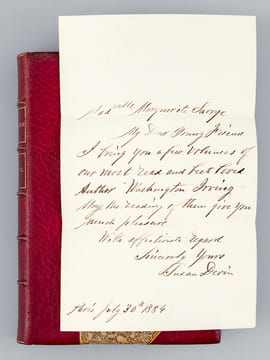 Madlle Marguerite
My Dear Young Friend
I bring you a few volumes of
our most read and best loved
Author Washington Irving
May the reading of them give you
much pleasure
With affectionate regard
Sincerely Yours
Susan
Paris July 30th 1884